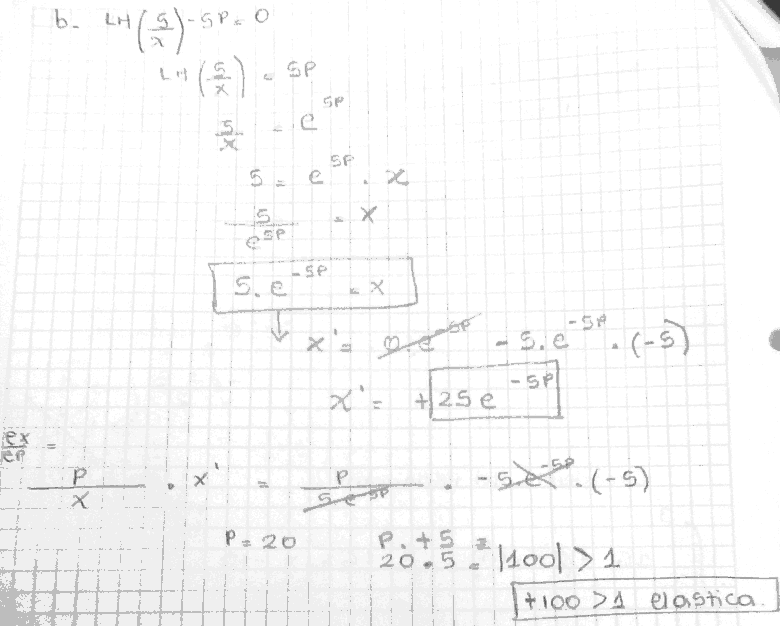 b- LH(5/x) - 5P = 0
LH(5/x) = 5P
5/x = e^5P
5 = e^5P . x
5/e^5P = x
5. e^-5P = x
x' = 0.e^-5P - 5.e^-5P . (-5)
x' = +25e^-5P
ex/ep =
P/x . x' = P/5e^-5P . -5e^-5P . (-5)
P = 20 P. +5 =
20.5 = |100| > 1
+100 > 1 elastica.